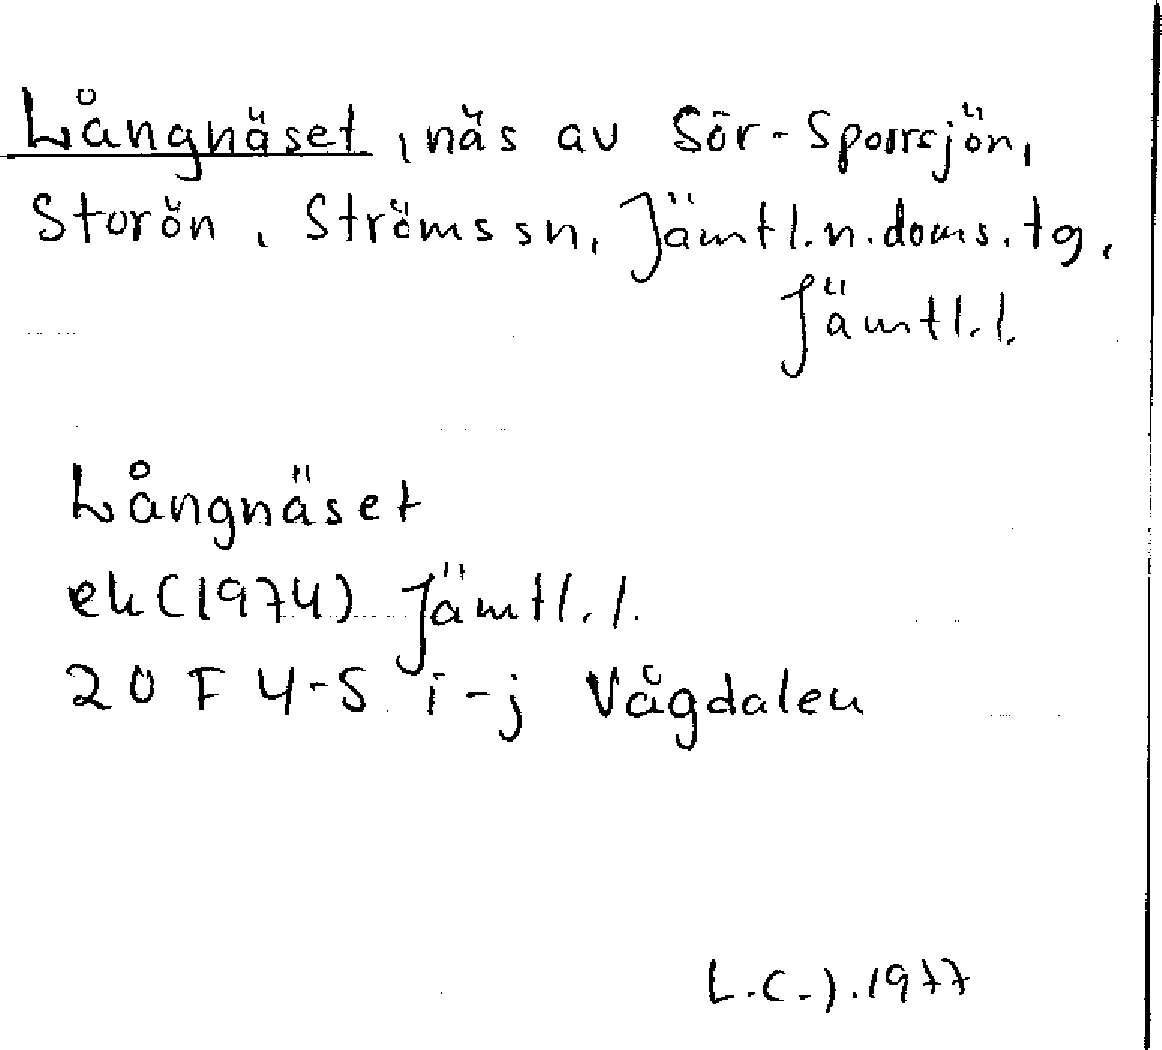 Långnäset, näs av Sör-Sporrsjön,
Storön, Ströms sn, Jämtl.n.doms.tg,
Jämtl.l.
Långnäset
ek(1974) Jämtl.l.
20 F 4-5 i-j Vågdalen
L.C.J.1977